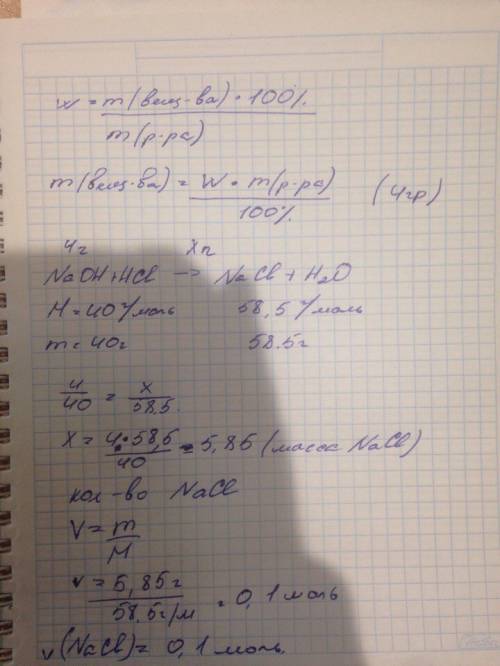 w = m(вещ-ва) • 100%
m(р-ра)
m(вещ-ва) = W • m(р-ра) (4гр)
100%
4г Xг
NaOH + HCl → NaCl + H₂O
M = 40 г/моль 58,5 г/моль
m = 40г 58.5г
4/40 = x/58,5.
X = 4•58,5/40 = 5,85 (масса NaCl)
кол-во NaCl
V = m/M
v = 5,85г/58.5г/м = 0,1 моль
v(NaCl) = 0,1 моль.